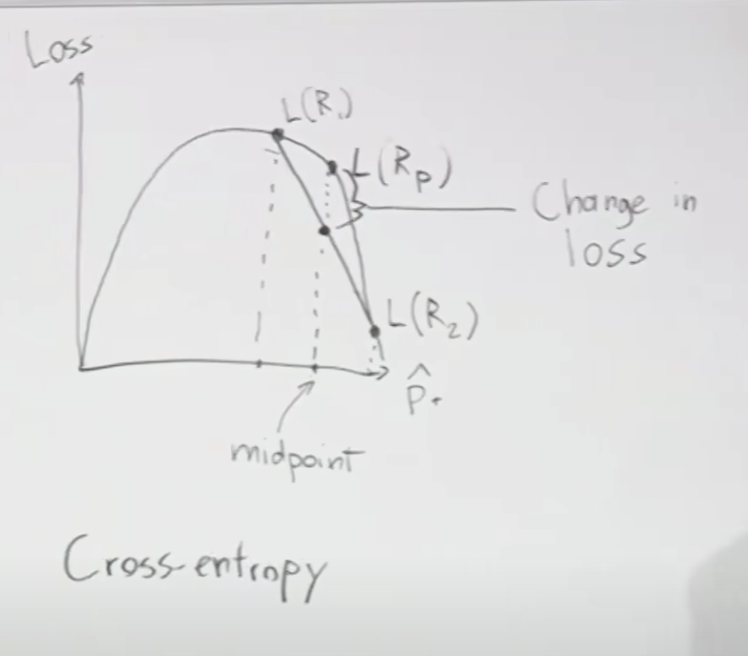 Loss
L(R₁)
L(Rₚ)
Change in
loss
L(R₂)
p̂₊
midpoint
Cross-entropy